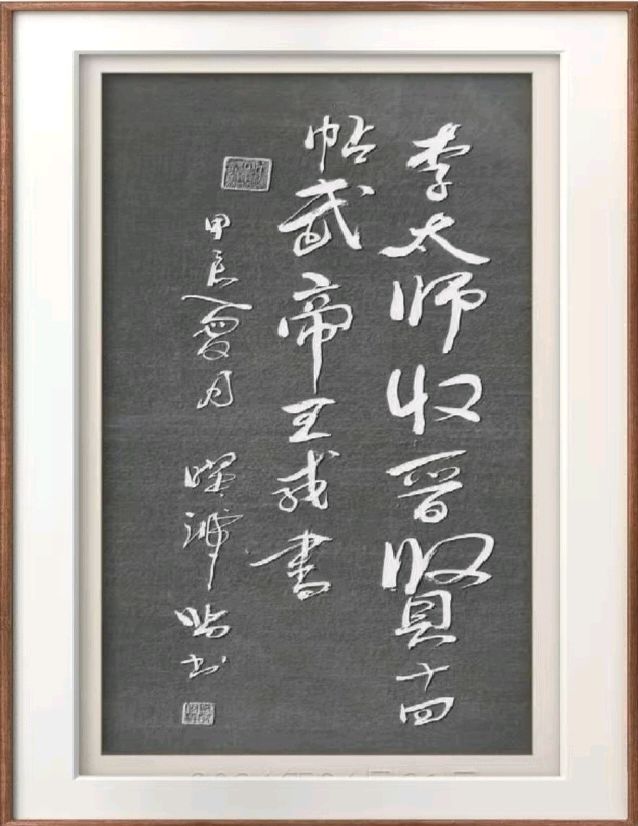 李太师收晋賢十四
帖武帝王戎書
甲辰夏月